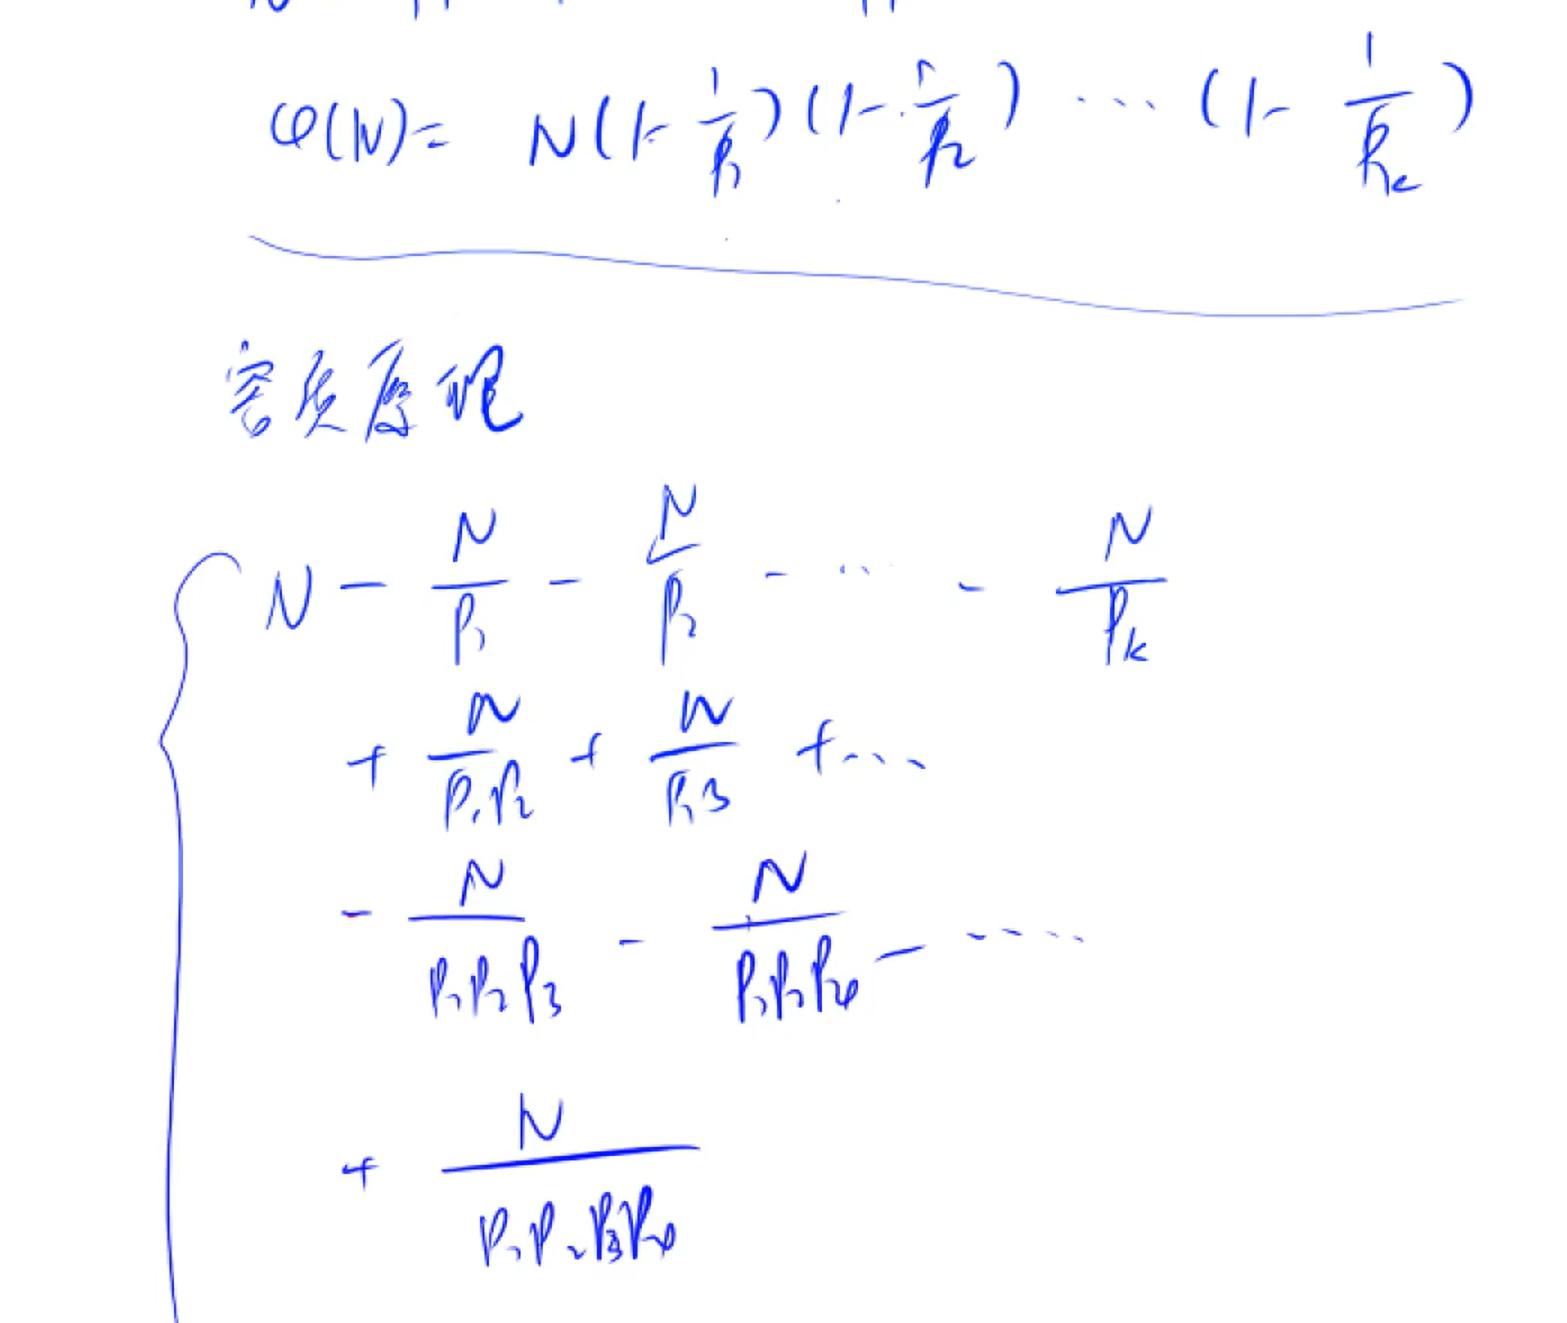 φ(N) = N(1-1/P1)(1-1/P2) ... (1-1/Pk)
容斥原理
N - N/P1 - N/P2 - ... - N/Pk
+ N/P1P2 + N/P1P3 + ...
- N/P1P2P3 - N/P1P2P4 - ....
+ N/P1P2P3P4